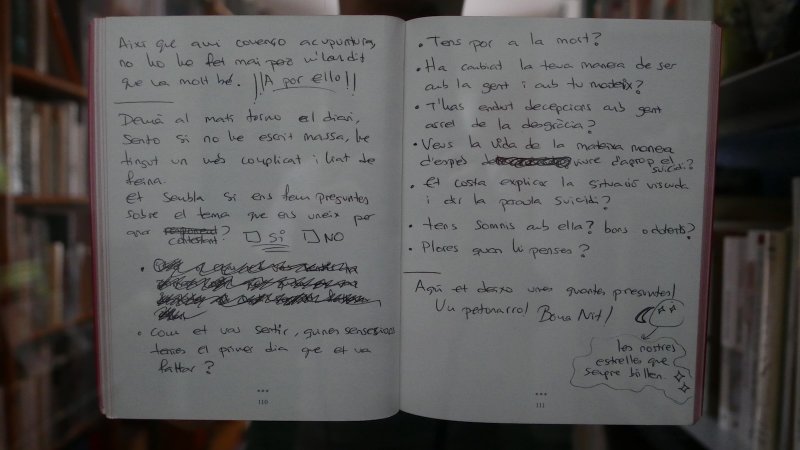 Així que avui començo acupuntura,
no ho he fet mai però m'han dit
que va molt bé. ¡¡A por ello!!
Demà al matí torno el diari,
sento si no he escrit massa, he
tingut un web complicat i liat de
feina.
Et sembla si ens fem preguntes
sobre el tema que ens uneix per
anar contestant? □ Sí □ NO
• Com et vas sentir, quines sensacions
tenies el primer dia que et va
faltar?
110
• Tens por a la mort?
• Ha canviat la teva manera de ser
amb la gent i amb tu mateix?
• T'has endut decepcions amb gent
arrel de la desgràcia?
• Veus la vida de la mateixa manera
després de viure d'aprop el suïcidi?
• Et costa explicar la situació viscuda
i dir la paraula suïcidi?
• Tens somnis amb ella? bons o dolents?
• Plores quan hi penses?
Aquí et deixo unes quantes preguntes!
Un petonarro! Bona Nit!
les nostres
estrelles que
sempre brillen.
111